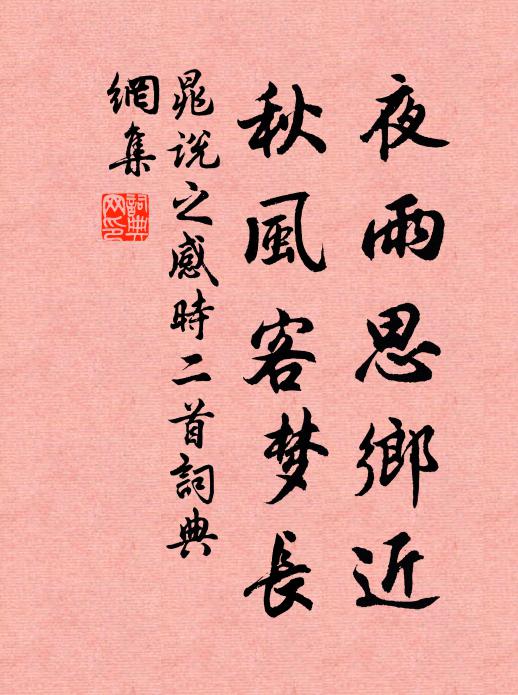 夜雨思鄉近
秋風客梦長
晁說之感時二首詞典
網集
詞典
网印